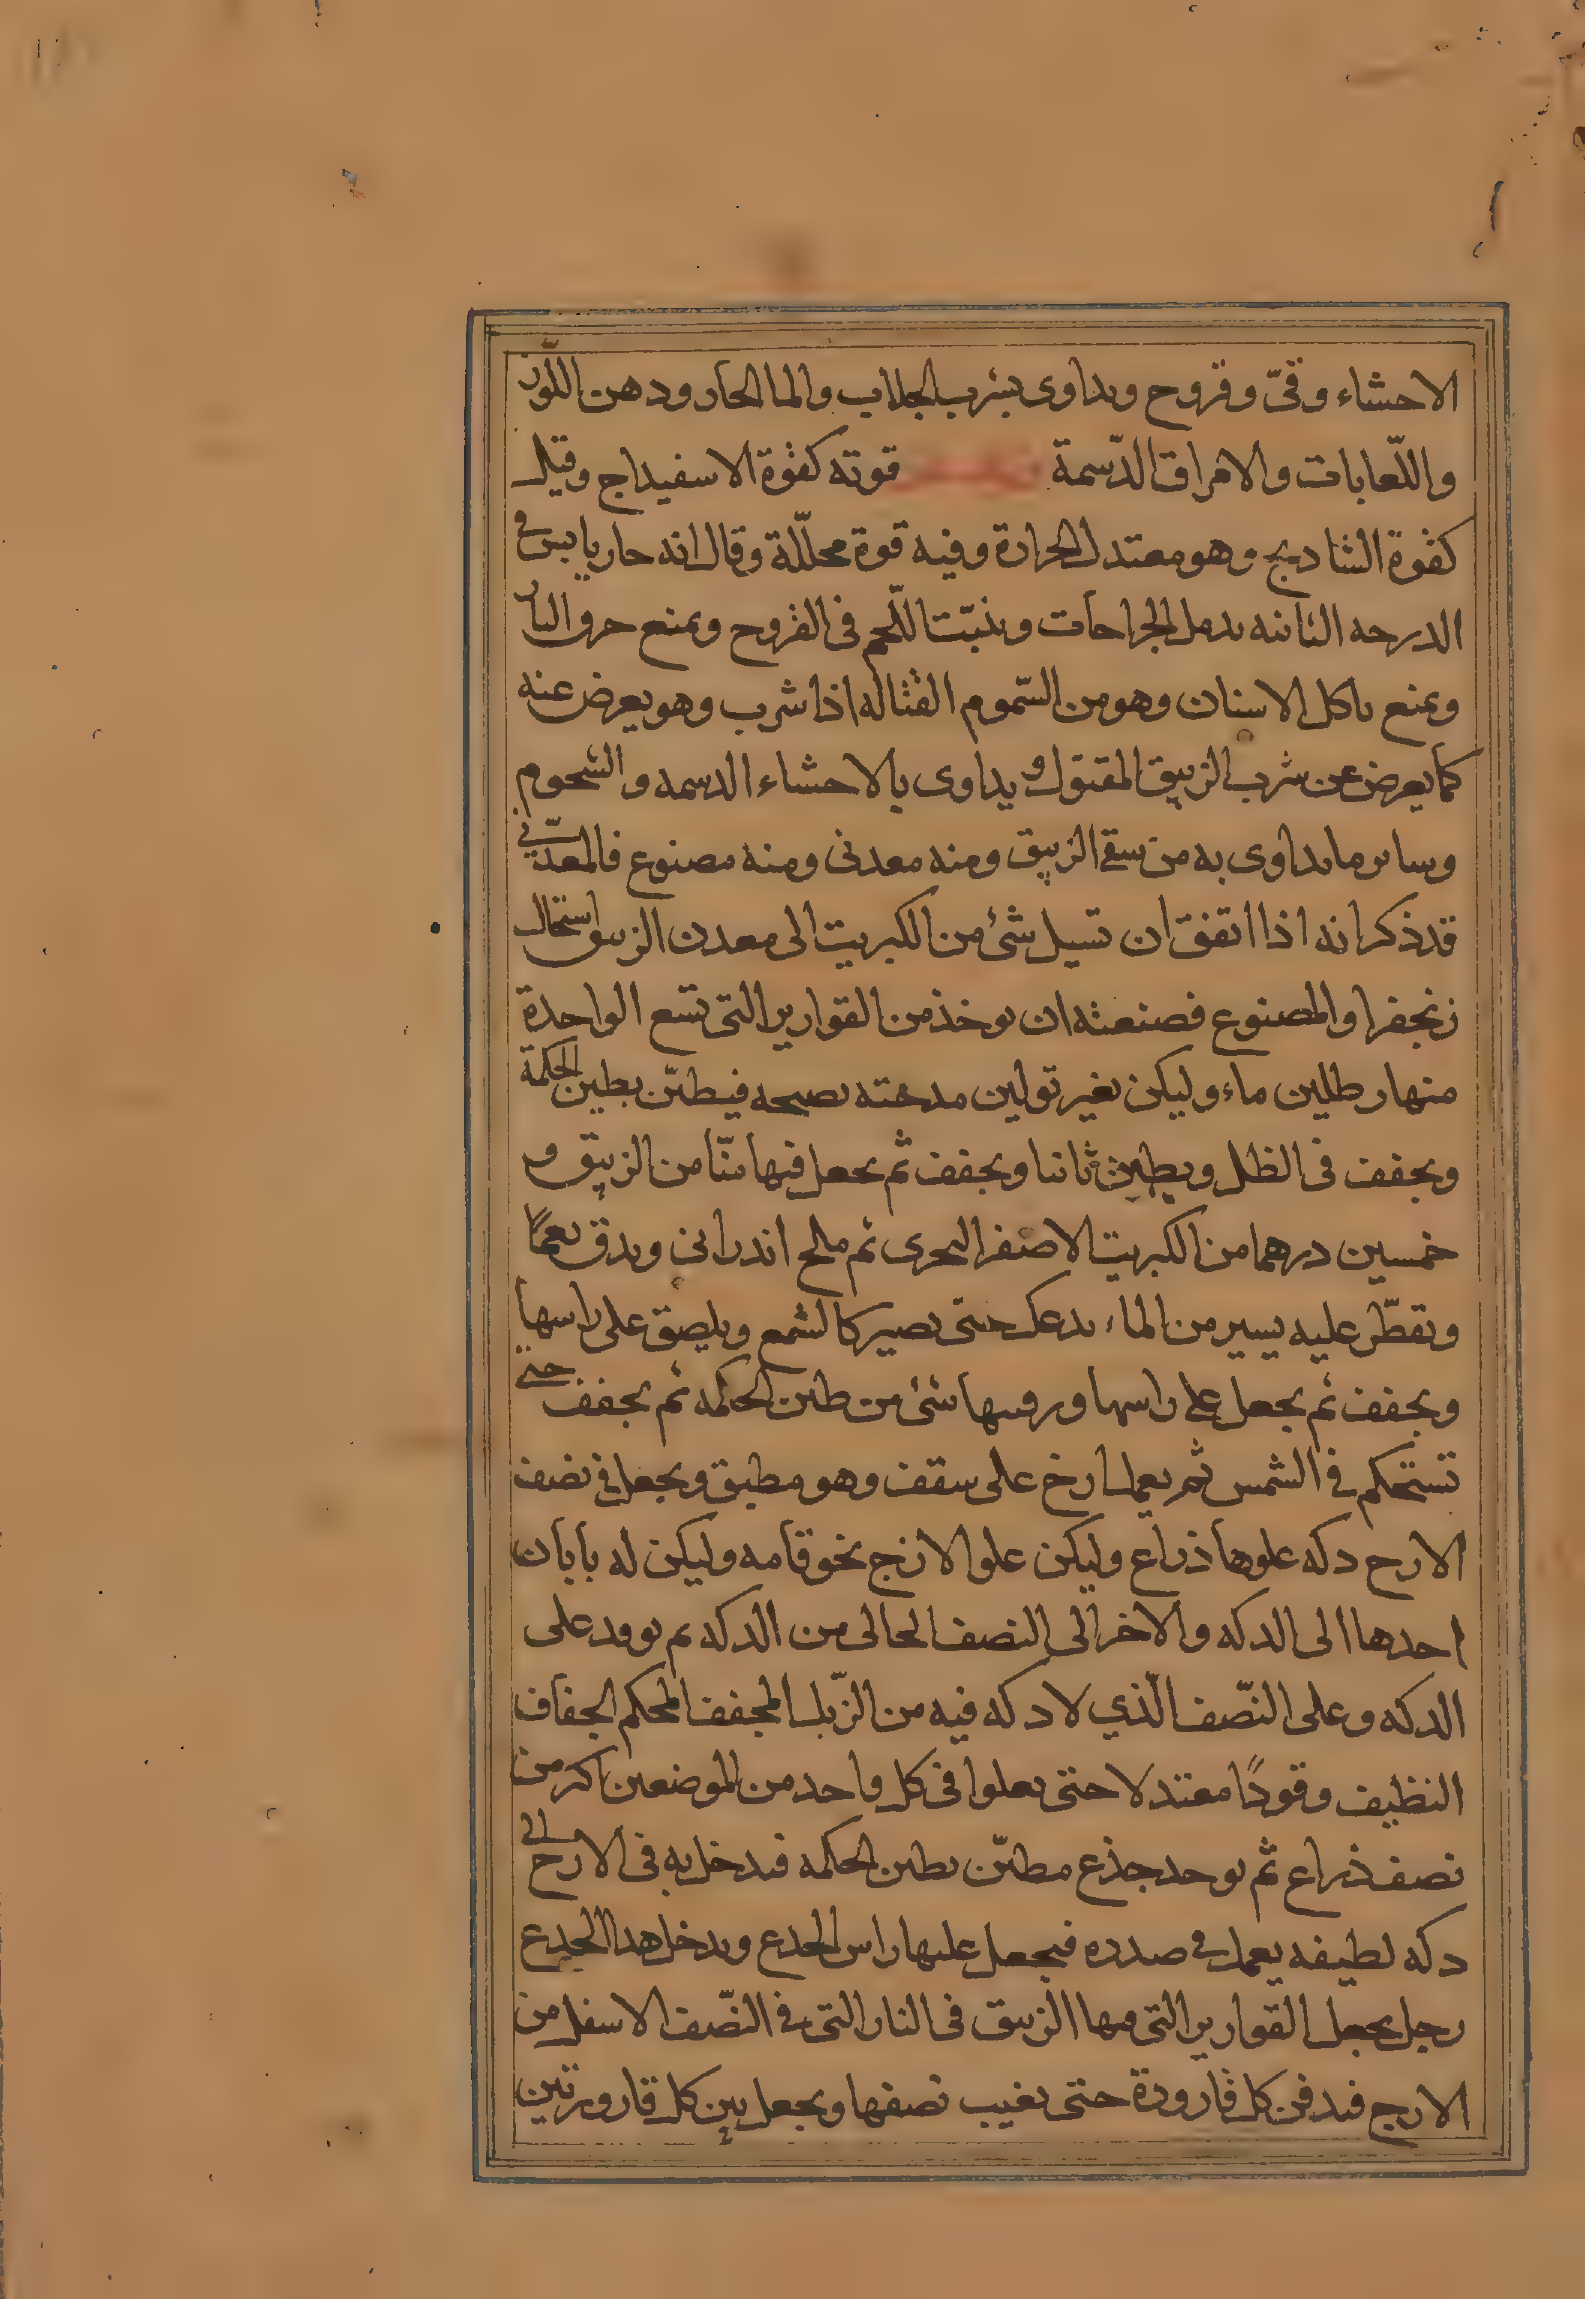 الاحشاء وقئ وقروح ويداوى بشرب الجلاب والما الحار ودهن اللوز
واللّعابات والامراق الدّسمة قوته كقوة الاسفيداج وقيل
كقوة الشادنج وهو معتدل الحرارة وفيه قوة محلّلة وقال انه حار يابس في
الدرجه الثانيه يدمل الجراحات وينبّت اللّحم فى القروح ويمنع حرق النار
ويمنع تاكل الاسنان وهو من السّموم القتاله اذا شرب وهو يعرض عنه
كما يعرض عن شرب الزيبق المقتول ويداوى بالاحشاء الدسمه والشحوم
وساير ما يداوى به من سقى الزيبق ومنه معدنى ومنه مصنوع فالمعدني
قد ذكر انه اذا اتفق ان تسيل شئ من الكبريت الى معدن الزيبق استحال
زنجفرا والمصنوع فصنعته ان يوخذ من القوارير التى تسع الواحدة
منها رطلين ماء وليكن بغير تولين مدحته صحيحه فيطيّن بطين الحكمة
ويجفف فى الظل ويطين ثانيا ويجفف ثم يجعل فيها منّا من الزيبق و
خمسين درهما من الكبريت الاصفر البحرى ثم ملح اندرانى ويدق نعمًا
ويقطّر عليه يسير من الماء يدعك حتى يصير كالشمع ويلصق على راسها
ويجفف ثم يجعل على راسها ورقبها شئ من طين الحكمه ثم يجفف حتى
تستحكم في الشمس ثم يعمل ارخ على سقف وهو مطبق ويجعل في نصف
الارح دكه علوها ذراع وليكن علو الازج نحو قامه وليكن له بابان
احدها الى الدكه والاخر الى النصف الخالى من الدكه ثم يوقد على
الدكه وعلى النّصف الّذي لا دكه فيه من الزّبل المجفف المحكم الجفاف
النظيف وقودًا معتدلا حتى يعلوا فى كل واحد من الموضعين اكثر من
نصف ذراع ثم يوخد جذع مطيّن بطين الحكمه فيدخل به فى الارح الى
دكه لطيفه يعمل في صدره فيجعل عليها راس الجدع ويدخل هدا الجدع
رجل يجعل القوارير التى فيها الزيبق فى النار التى في النّصف الاسفل من
الارج فيدفن كل قارورة حتى يغيب نصفها ويجعل بين كل قارورتين